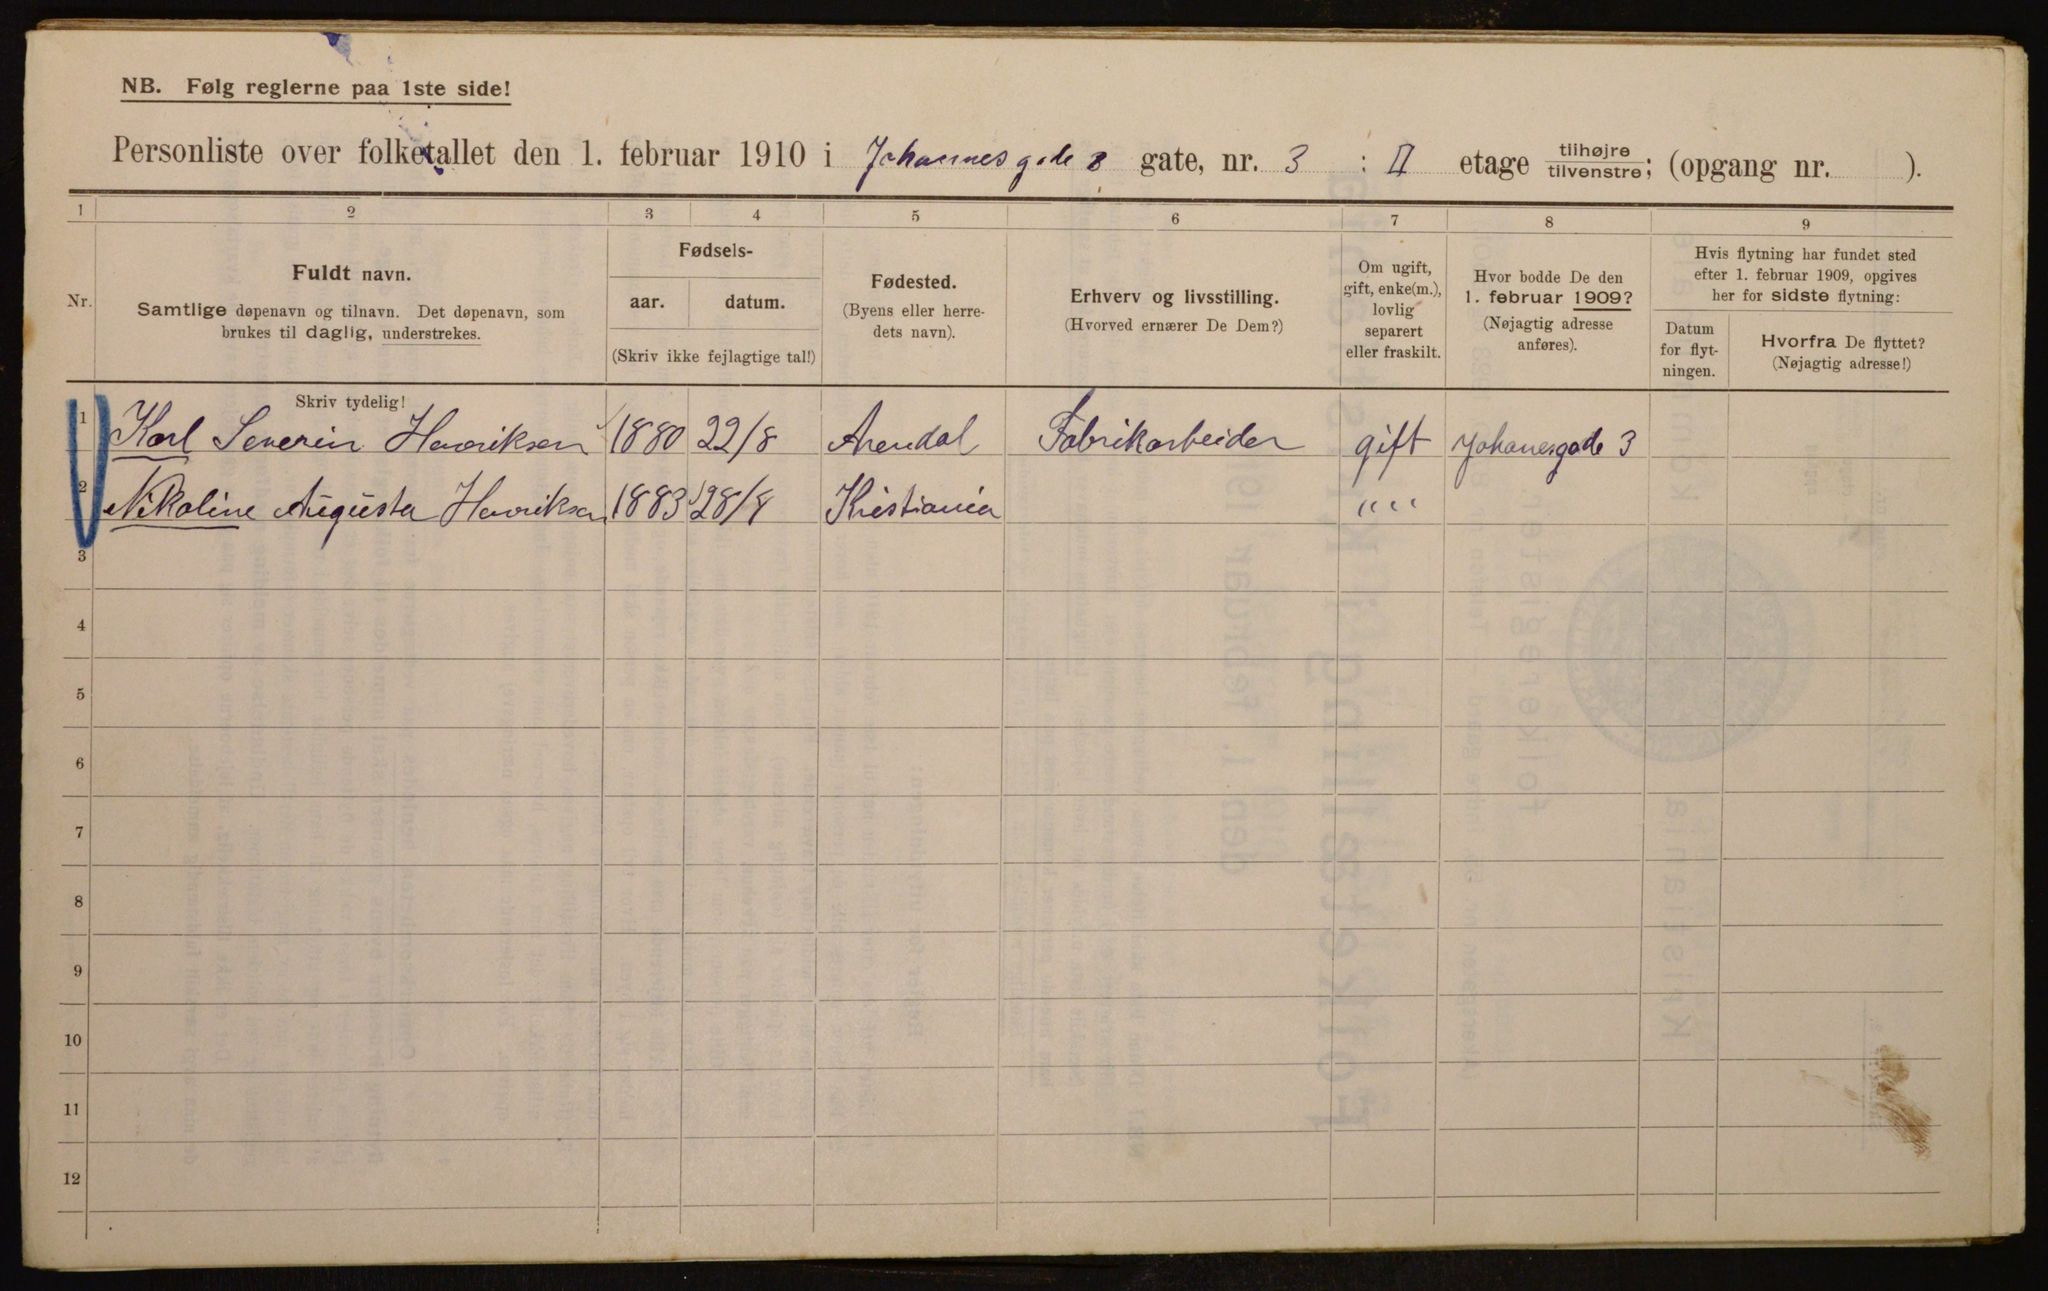 NB. Følg reglerne paa 1ste side!
Personliste over folketallet den 1. februar 1910 i Johannes gade gate, nr. 3 : II etage tilhøjre/tilvenstre; (opgang nr. ).
1 2 3 4 5 6 7 8 9
Nr.
Fuldt navn.
Samtlige døpenavn og tilnavn. Det døpenavn, som
brukes til daglig, understrekes.
Skriv tydelig!
Fødsels-
aar. datum.
(Skriv ikke fejlagtige tal!)
Fødested.
(Byens eller herre-
dets navn).
Erhverv og livsstilling.
(Hvorved ernærer De Dem?)
Om ugift,
gift, enke(m.),
lovlig
separert
eller fraskilt.
Hvor bodde De den
1. februar 1909?
(Nøjagtig adresse
anføres).
Hvis flytning har fundet sted
efter 1. februar 1909, opgives
her for sidste flytning:
Datum
for flyt-
ningen.
Hvorfra De flyttet?
(Nøjagtig adresse!)
1 Karl Severin Henriksen 1880 22/8 Arendal Fabrikarbeider gift Johanesgade 3
2 Nikoline Augusta Henriksen 1883 Kristiania " "
3
4
5
6
7
8
9
10
11
12